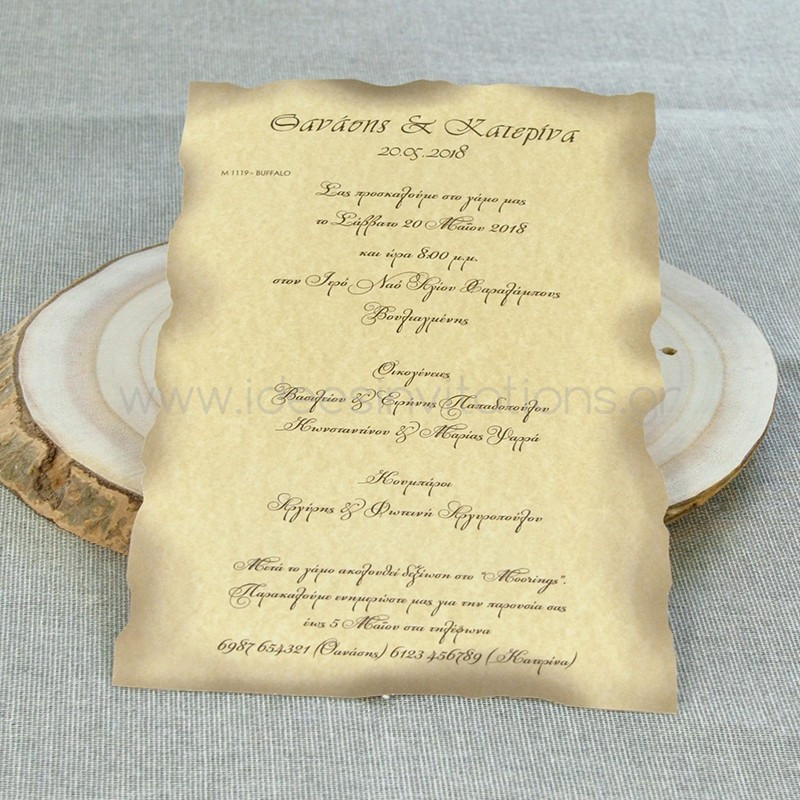 Θανάσης & Κατερίνα
20.05.2018
M 1119 - BUFFALO
Σας προσκαλούμε στο γάμο μας
το Σάββατο 20 Μαΐου 2018
και ώρα 8:00 μ.μ.
στον Ιερό Ναό Αγίου Χαραλάμπους
Βουλιαγμένης
www.ideesinvitations.gr
Οικογένειες
Βασιλείου & Ειρήνης Παπαδοπούλου
Κωνσταντίνου & Μαρίας Ψαρρά
Κουμπάροι
Αργύρης & Φωτεινή Αργυροπούλου
Μετά το γάμο ακολουθεί δεξίωση στο "Moorings".
Παρακαλούμε ενημερώστε μας για την παρουσία σας
έως 5 Μαΐου στα τηλέφωνα
6987 654321 (Θανάσης) 6123 456789 ( Κατερίνα)